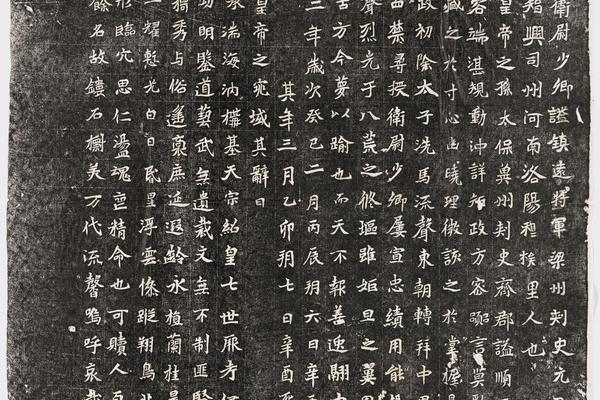 衛尉少卿謚鎮遠將軍梁州刺史元
智興司州河南洛陽穆族里人也
皇帝之孫太保冀州刺史齊郡謚順
容端湛規動沖詳加政方容謌言莫
臧之於寸心幽曉理微談之於掌握
政初除太子洗馬流聲東朝轉拜中
曲禁尋授衛尉少卿屢宣忠績用能
聲烈光于八荒之攸堀雖姬旦之翼
古方今蔑以踰也而天不報善
二年歲次癸巳二月丙辰朔六日辛
其年三月乙卯朔七日辛酉
皇帝之宛域其辭曰
淵海汭構基天宗紹皇七世厥考
明鑒道藝武無遺裁文無不制匪
秀与俗遙裒庶延遐齡永植蘭桂
耀慙光白日昏星浮雲滌蹤翔鳥
形臨穴思仁盪魂亶精命也可贖人百
餘名故鏤石櫥美万代流馨嗚呼哀哉